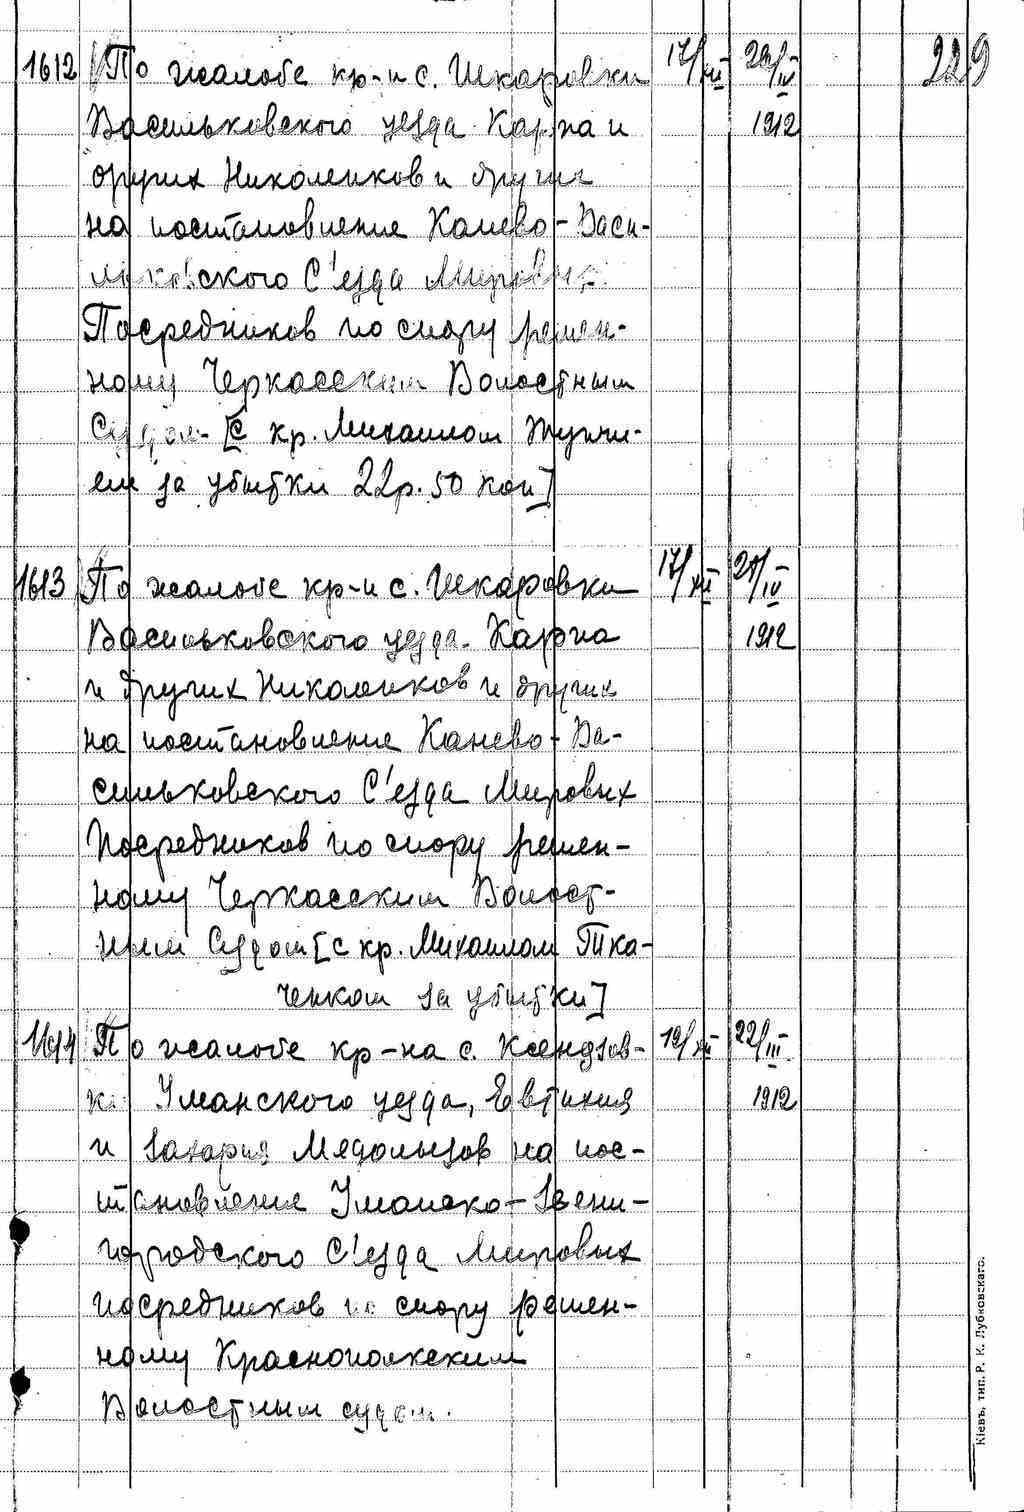 229
1612 По жалобе кр-н с. Шкаровки 17/XII 22/IV
Васильковского уезда Карпа и 1912
других Николенков и других
на постановление Канево-Васи-
льковского С'езда Мировых
Посредников по спору решен-
ному Черкасским Волостным
Судом [с кр. Михаилом
за убытки 22р. 50 коп]
1613 По жалобе кр-н с. Шкаровки 17/XII 21/IV
Васильковского уезда Карпа 1912
и других Николенков и других
на постановление Канево-Ва-
сильковского С'езда Мировых
Посредников по спору решен-
ному Черкасским Волост-
ным Судом [с кр. Михаилом Тка-
ченком за убытки]
1614 По жалобе кр-на с. Ксендзов- 19/XII 22/III
ки Уманского уезда, Евтихия 1912
и Захария Медолызов на пос-
тановление Уманско-Звени-
городского С'езда Мировых
посредников по спору решен-
ному Краснопольским
Волостным судом.
Кіевъ, тип. Р. К. Лубковскаго.